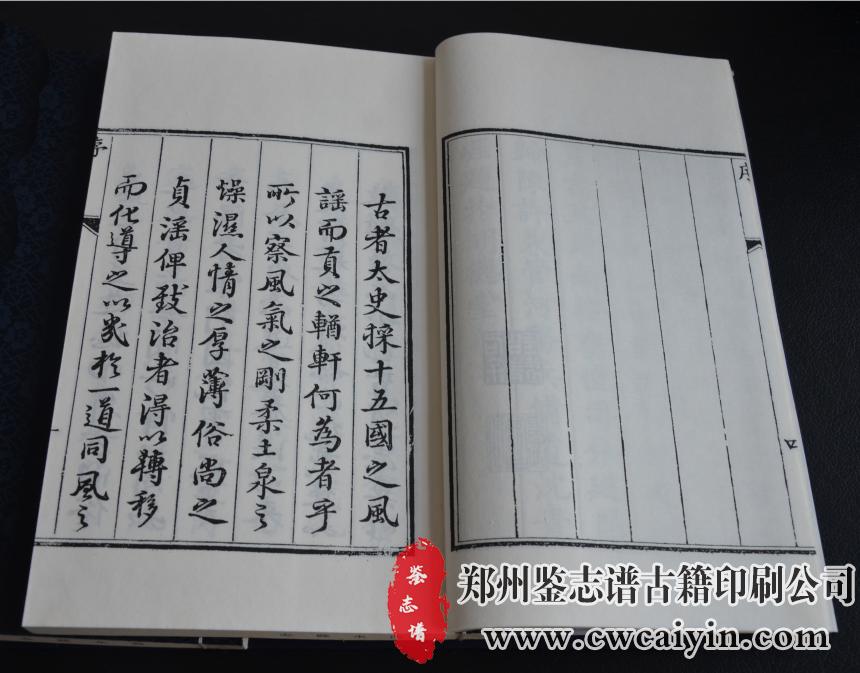 古者太史採十五國之風
謡而貢之輶軒何為者乎
所以察風氣之剛柔土泉之
燥濕人情之厚薄俗尚之
貞滛俾致治者得以轉移
而化導之以㡬於一道同風之
序
鉴志谱
郑州鉴志谱古籍印刷公司
www.cwcaiyin.com